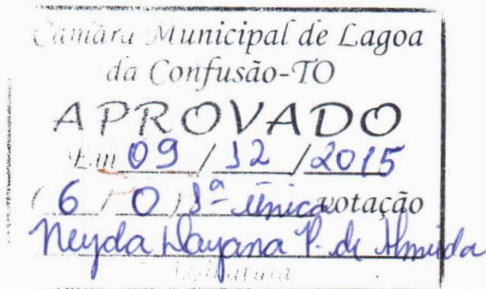 Câmara Municipal de Lagoa
da Confusão-TO
APROVADO
Em 09 / 12 / 2015
( 6 / 0 ) 1ª única votação
Neyda Dayana P. de Almeida
Assinatura